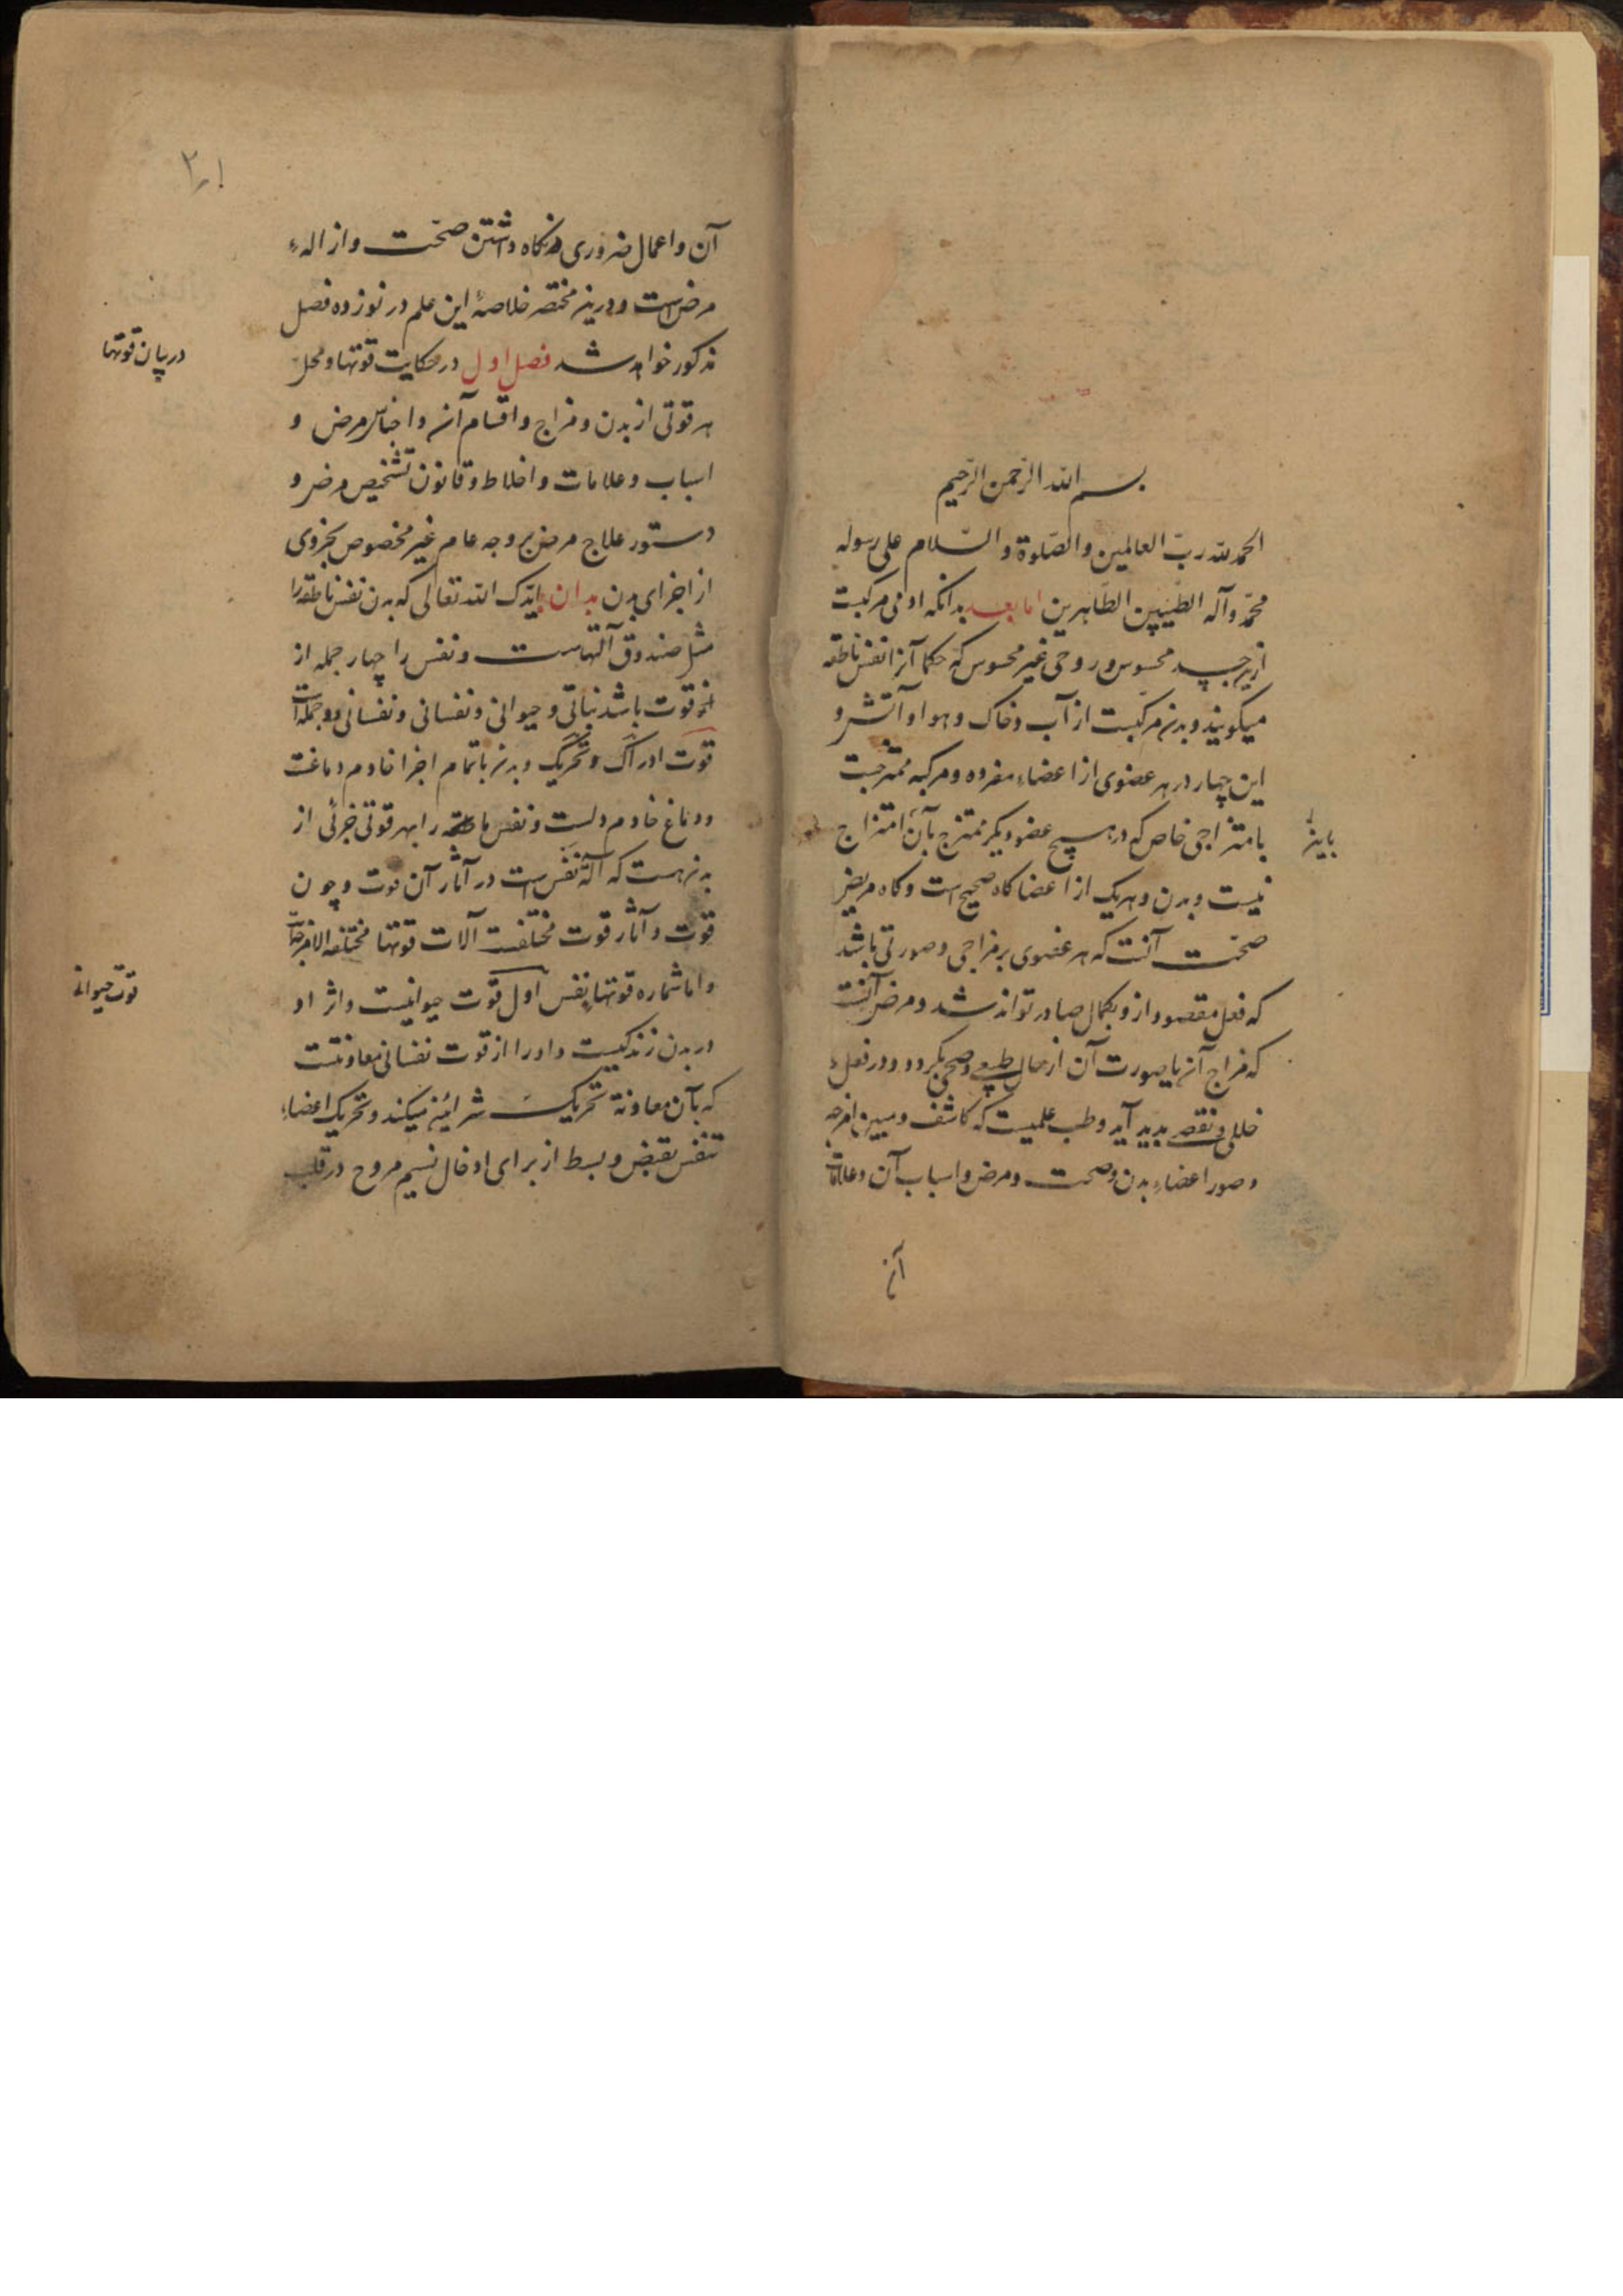 بسم الله الرحمن الرحیم
الحمد لله رب العالمین والصلوة والسلام علی رسوله
محمد وآله الطیبین الطاهرین اما بعد بدانکه ادمی مرکبست
ازین جسد محسوس و روحی غیر محسوس که حکما آنرا نفس ناطقه
میکویند و بدن مرکبست از آب و خاک و هوا و آتش و
این چهار در هر عضوی از اعضاء مفرده و مرکبه ممتزجست
بامتزاجی خاص که در هیچ عضو دیکر ممتزج بآن امتزاج
نیست و بدن و هریک از اعضا کاه صحیح است و کاه مریض
صحت آنست که هر عضوی بر مزاجی و صورتی باشد
که فعل مقصود ازو بکمال صادر تواند شد و مرض آنست
که مزاج آن یا صورت آن از حال طبیعی و صحی بکردد و در فعل
خللی و نقص بدید آید و طب علمیست که کاشف و مبین امزجه
و صور اعضاء بدن و صحت و مرض و اسباب آن و علامات
آن
آن و اعمال ضروری در نکاه داشتن صحت و ازاله
مرض است و درین مختصر خلاصهٔ این علم در نوزده فصل
مذکور خواهد شد فصل اول در حکایت قوتها و محل
در بیان قوتها
هر قوتی از بدن و مزاج و اقسام آن و اجناس مرض و
اسباب و علامات و اخلاط و قانون تشخیص مرض و
دستور علاج مرض بر وجه عام غیر مخصوص بجزوی
از اجزای بدن بدان ایدک الله تعالی که بدن نفس ناطقه را
مثل صندوق آلتهاست و نفس را چهار جمله از
قوت باشد نباتی و حیوانی و نفسانی و نفسانی دو جمله است
قوت ادراک و تحریک و بدن باتمام اجزا خادم دماغست
و دماغ خادم دلست و نفس ناطقه را بهر قوتی جزئی از
بدن هست که آلهٔ نفس است در آثار آن قوت و چون
قوت و آثار قوت مختلفست آلات قوتها مختلفه الامزجه است
و اما شماره قوتها نفس اول قوت حیوانیست و اثر او
قوت حیوانی
در بدن زندکیست و او را از قوت نفسانی معاونتست
که بآن معاونة تحریک شرائین میکند و تحریک اعضاء
تنفس بقبض و بسط از برای ادخال نسیم مروح در قلب